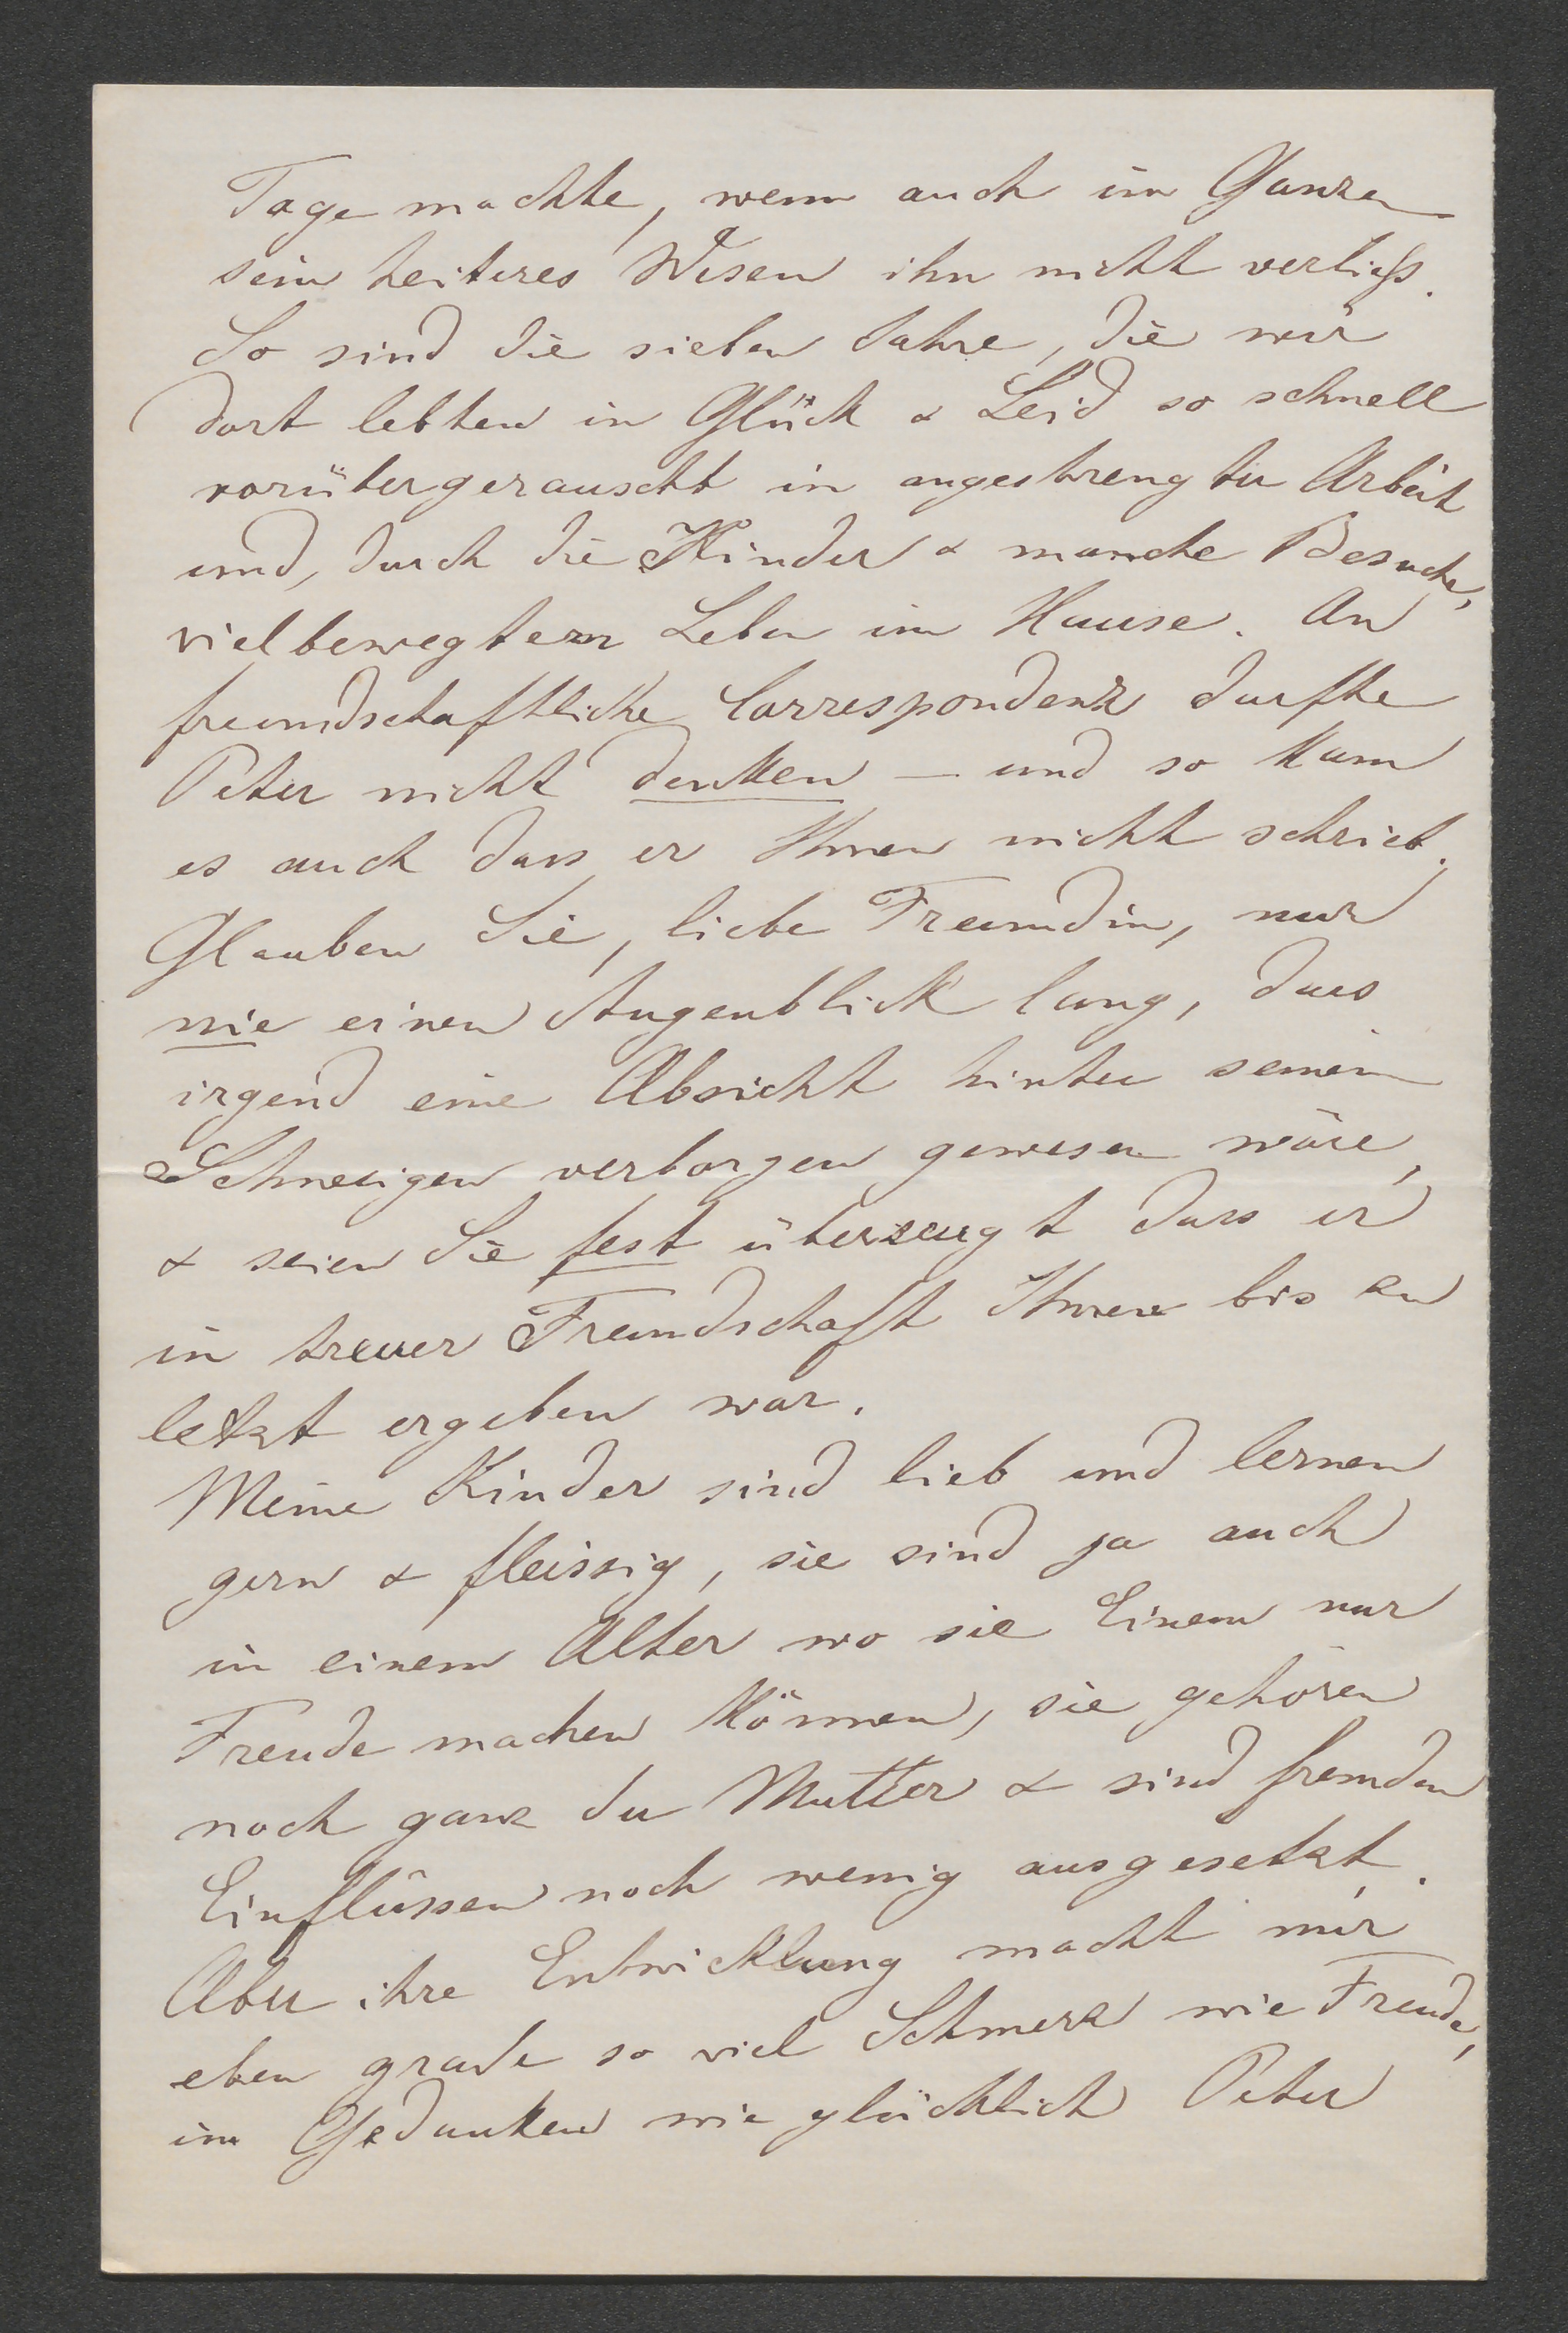 Tage machte, wenn auch im Ganzen
sein heiteres Wesen ihn nicht verließ.
So sind die sieben Jahre, die wir
dort lebten in Glück & Leid so schnell
vorübergerauscht in angestrengter Arbeit
und, durch die Kinder & manche Besuche,
vielbewegtem Leben im Hause. An
freundschaftliche Correspondenz durfte
Peter nicht denken — und so kam
es auch dass er Ihnen nicht schrieb.
Glauben Sie, liebe Freundin, nur
nie einen Augenblick lang, dass
irgend eine Absicht hinter seinem
Schweigen verborgen gewesen wäre,
& seien Sie fest überzeugt dass er
in treuer Freundschaft Ihnen bis zu
letzt ergeben war.
Meine Kinder sind lieb und lernen
gern & fleissig, sie sind ja auch
in einem Alter wo sie Einem nur
Freude machen können, sie gehören
noch ganz der Mutter & sind fremden
Einflüssen noch wenig ausgesetzt.
Aber ihre Entwicklung macht mir
eben grade so viel Schmerz wie Freude,
im Gedanken wie glücklich Peter